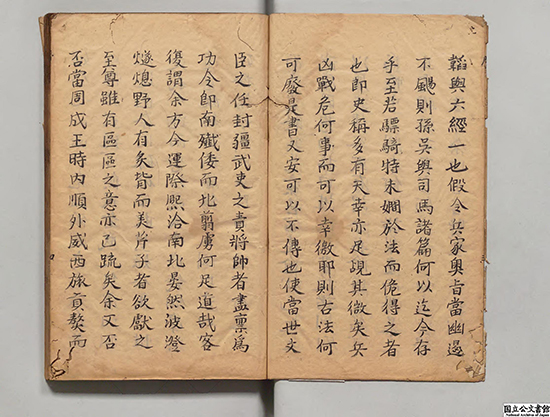 韜與六經一也假令兵家奧旨當幽遏
不颺則孫吳與司馬諸篇何以迄今存
乎至若驃騎特未嫺於法而僥得之者
也即史稱多有天幸亦足覘其微矣兵
凶戰危何事而可以幸徼耶則古法何
可廢是書又安可以不傳也使當世文
臣之任封疆武吏之責將帥者盡稟爲
功令即南殱倭而北翦虜何足道哉客
復謂余方今運際熙洽南北晏然波澄
燧熄野人有炙背而美芹子者欲獻之
至尊雖有區區之意亦已疏矣余又否
否當周成王時內順外威西旅貢獒而
国立公文書館
National Archives of Japan